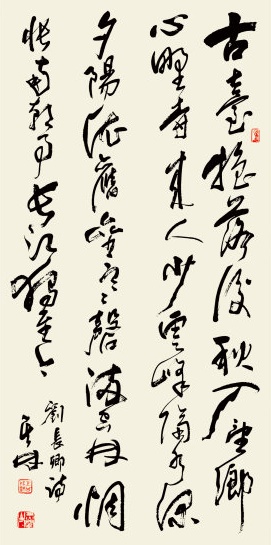 古臺搖落後秋入望鄉
心野寺來人少雲峰隔水深
夕陽依舊壘寒磬滿空林惆
悵南朝事長江獨至今
劉長卿詩